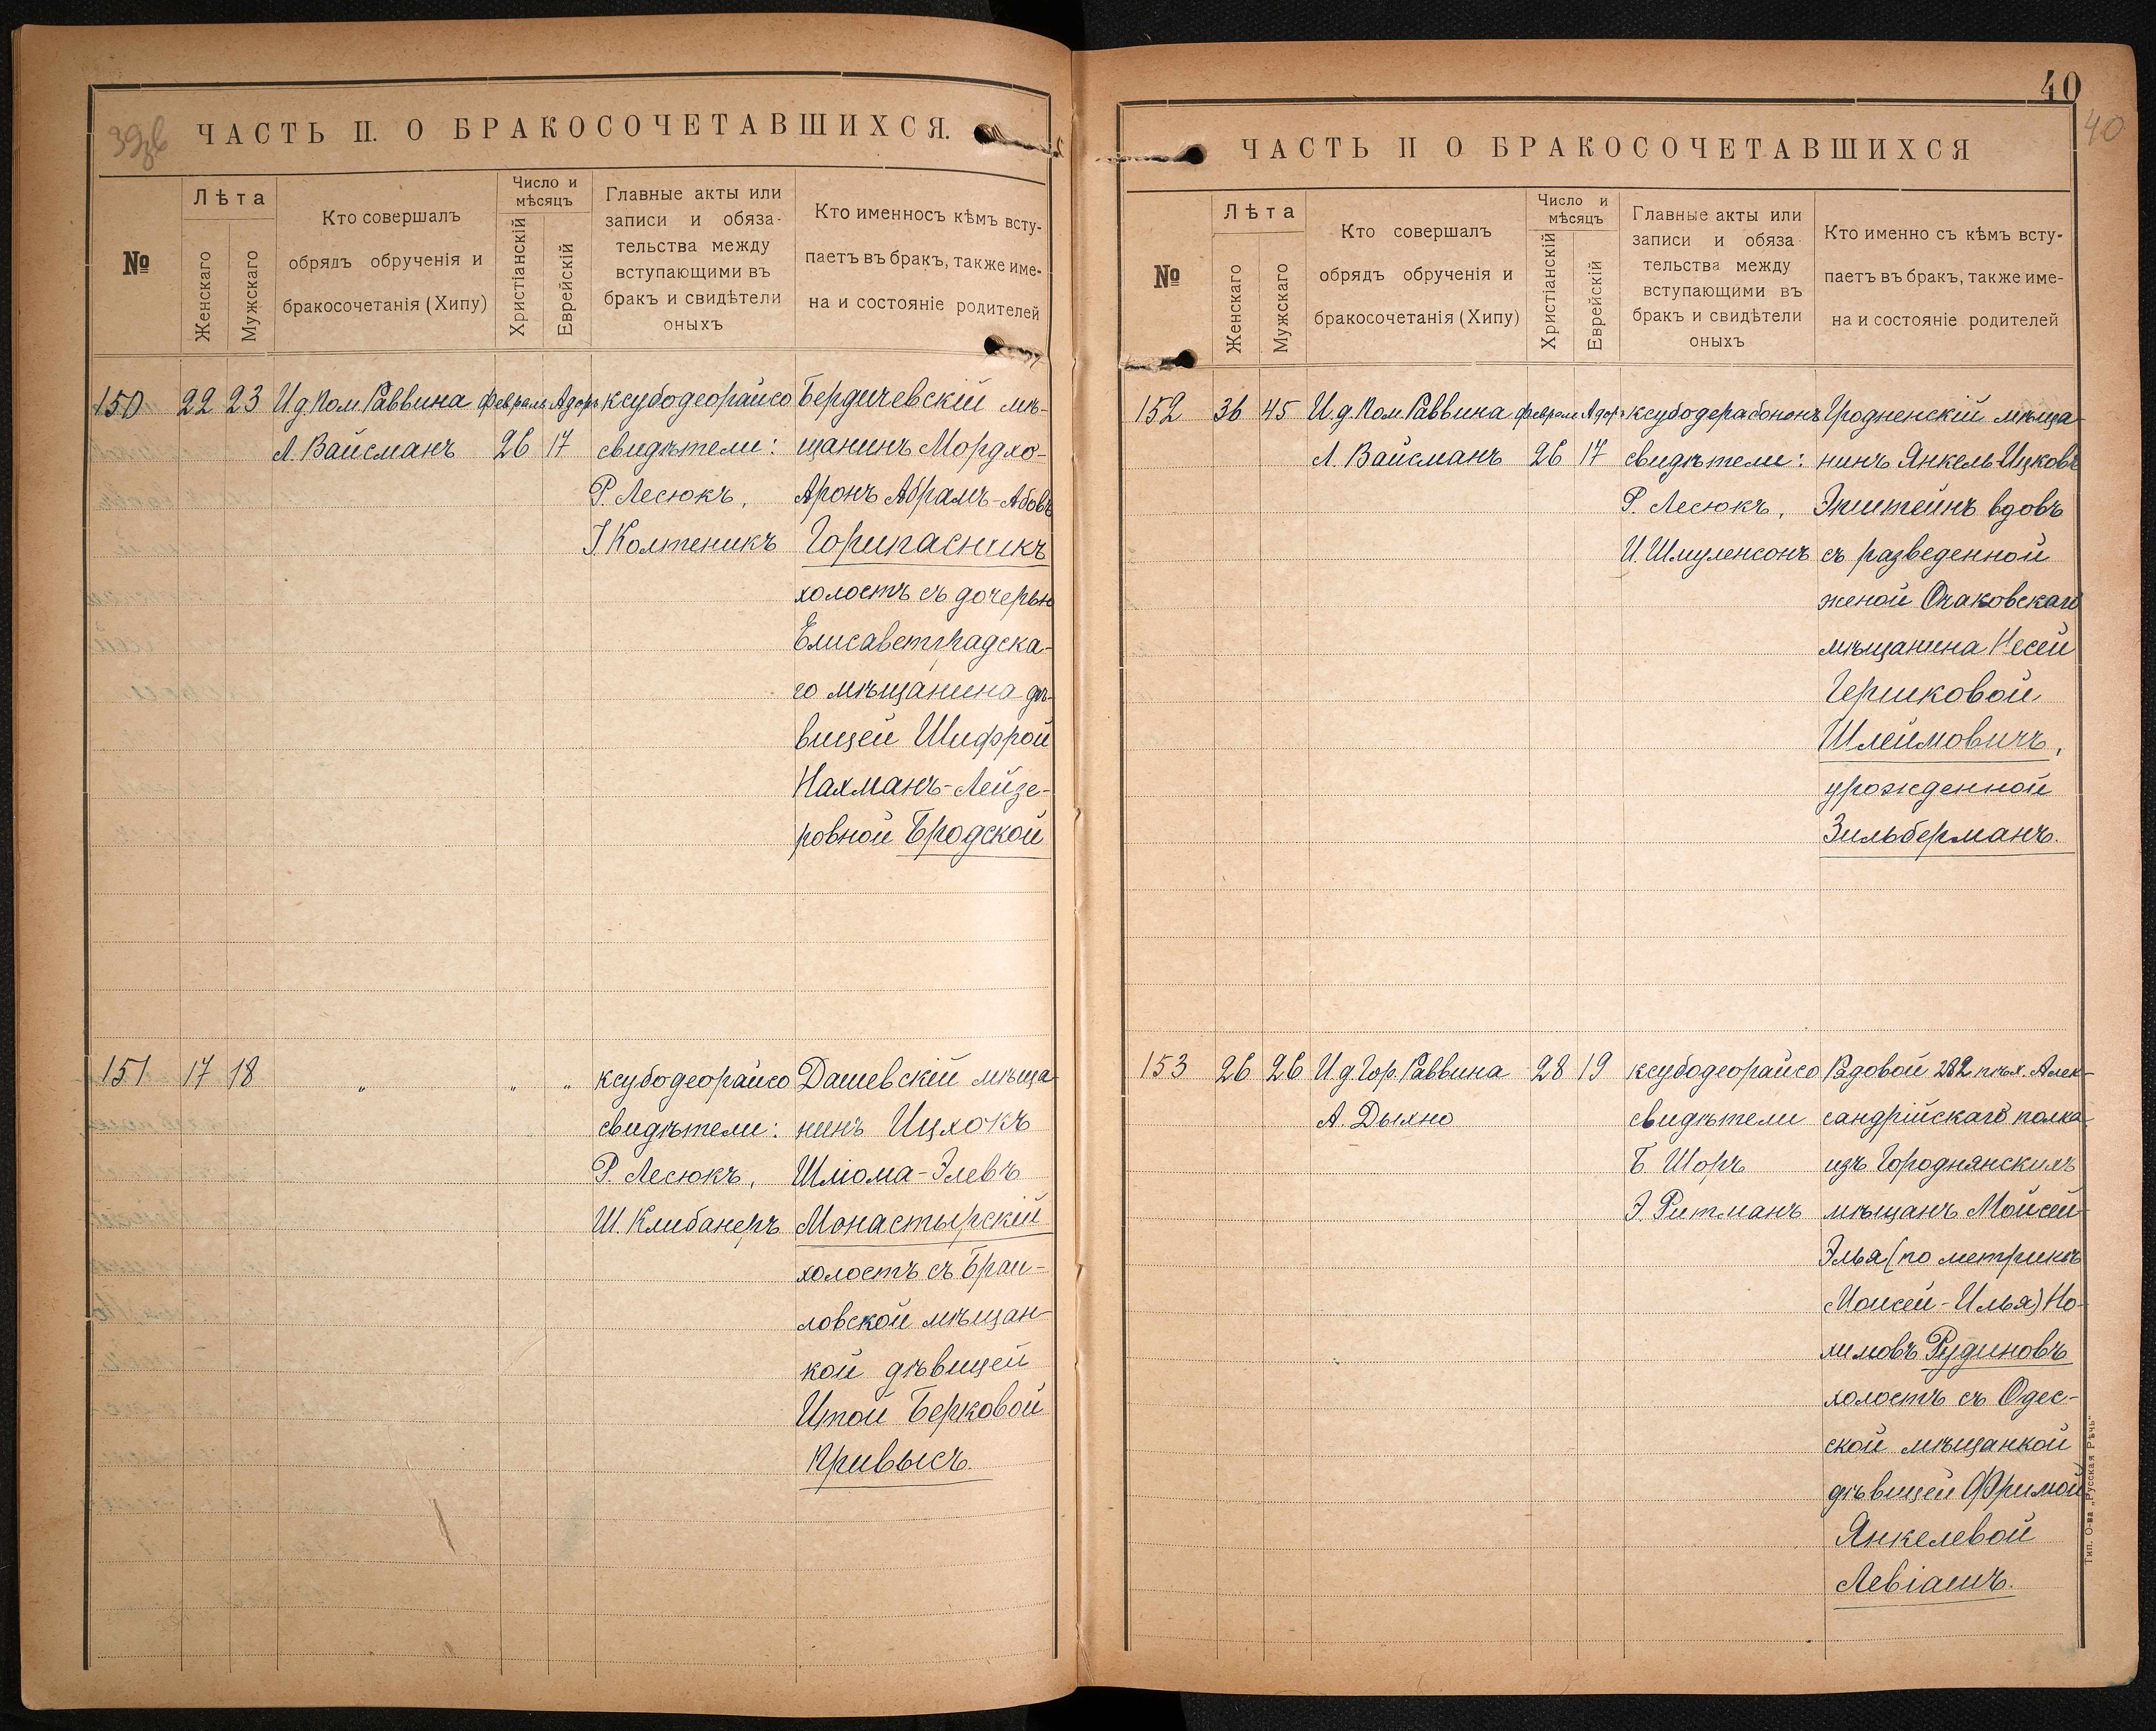 39об
ЧАСТЬ II. О БРАКОСОЧЕТАВШИХСЯ.
№
Лѣта
Женскаго
Мужскаго
Кто совершалъ
обрядъ обрученія и
бракосочетанія (Хипу)
Число и
мѣсяцъ
Христіанскій
Еврейскій
Главные акты или
записи и обяза-
тельства между
вступающими въ
бракъ и свидѣтели
оныхъ
Кто именносъ кѣмъ всту-
паетъ въ бракъ, также име-
на и состояніе родителей
150
22
23
И д Пом Раввина
Л. Вайсманъ
Февраль
26
Адоръ
17
ксубодеорайсо
свидѣтели:
Р. Лесюкъ,
І Колтеникъ
Бердичевскій мѣ-
щанинъ Мордхо-
Аронъ Абрамъ-Абовъ
Горипасникъ
холостъ съ дочерью
Елисаветградска-
го мѣщанина дѣ-
вицей Шифрой
Нахманъ-Лейзе-
ровной Бродской
151
17
18
"
"
"
ксубодеорайсо
свидѣтели:
Р. Лесюкъ,
Ш. Клибанеръ
Дашевскій мѣща-
нинъ Ицхокъ
Шлiома-Элевъ
Монастырскій
холостъ съ Браи-
ловской мѣщан-
кой дѣвицей
Ипой Берковой
Кривысъ.
40
40
ЧАСТЬ II О БРАКОСОЧЕТАВШИХСЯ
№
Лѣта
Женскаго
Мужскаго
Кто совершалъ
обрядъ обрученія и
бракосочетанія (Хипу)
Число и
мѣсяцъ
Христіанскій
Еврейскій
Главные акты или
записи и обяза
тельства между
вступающими въ
бракъ и свидѣтели
оныхъ
Кто именно съ кѣмъ всту-
паетъ въ бракъ, также име-
на и состояніе родителей
152
36
45
И. д. Пом. Раввина
Л. Вайсманъ
Февраль
26
Адоръ
17
ксубодерабононъ
свидѣтели:
Р. Лесюкъ,
И. Шмуленсонъ
Гродненскій мѣща-
нинъ Янкель Ицковъ
Эпштейнъ вдовъ
съ разведенной
женой Очаковскаго
мѣщанина Несей
Гершковой
Шлеймовичъ,
урожденной
Зильберманъ.
153
26
26
И д Гор. Раввина
А. Дыхно
28
19
ксубодеорайсо
свидѣтели
Б. Шоръ
Э. Ритманъ
Рядовой 282 пѣх. Алек-
сандрійскаго полка
изъ Городнянскихъ
мѣщанъ Мойсей-
Элья (по метрикѣ
Моисей-Илья) Но-
химовъ Рудиновъ
холостъ съ Одес-
ской мѣщанкой
дѣвицей Фримой
Янкелевой
Левіашъ.
Тип. О-ва „Русская Рѣчь“